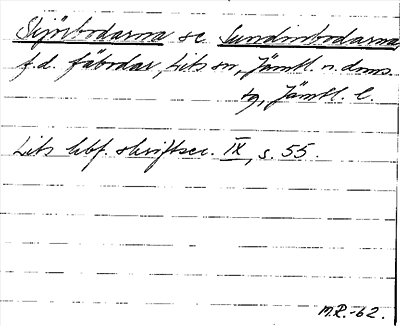 Skjörbodarna se Sundinbodarna,
f.d. fäbodar, Lits sn, Jämtl. n. doms.
tg, Jämtl. l.
Lits hbf. skriftser. IX, s. 55.
M.R.-62.